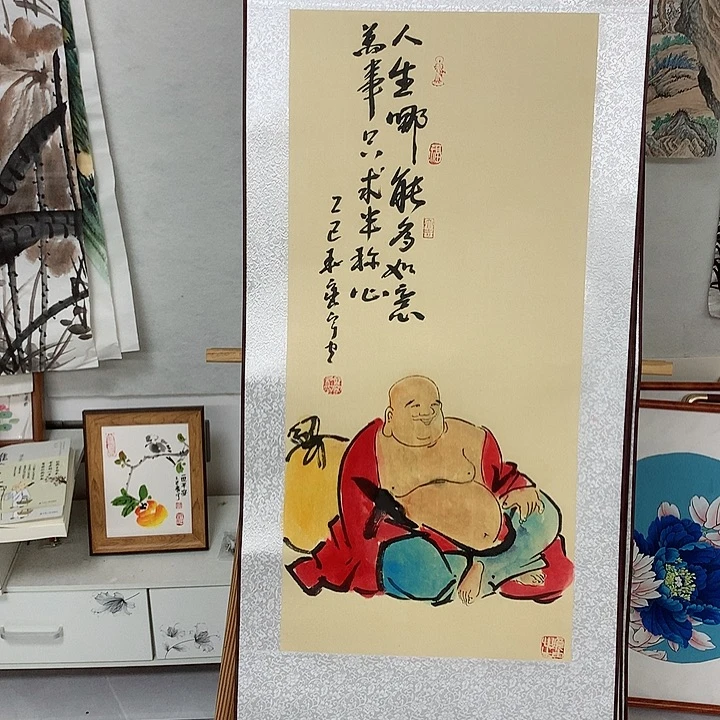 人生哪能多如意
萬事只求半称心
乙巳春